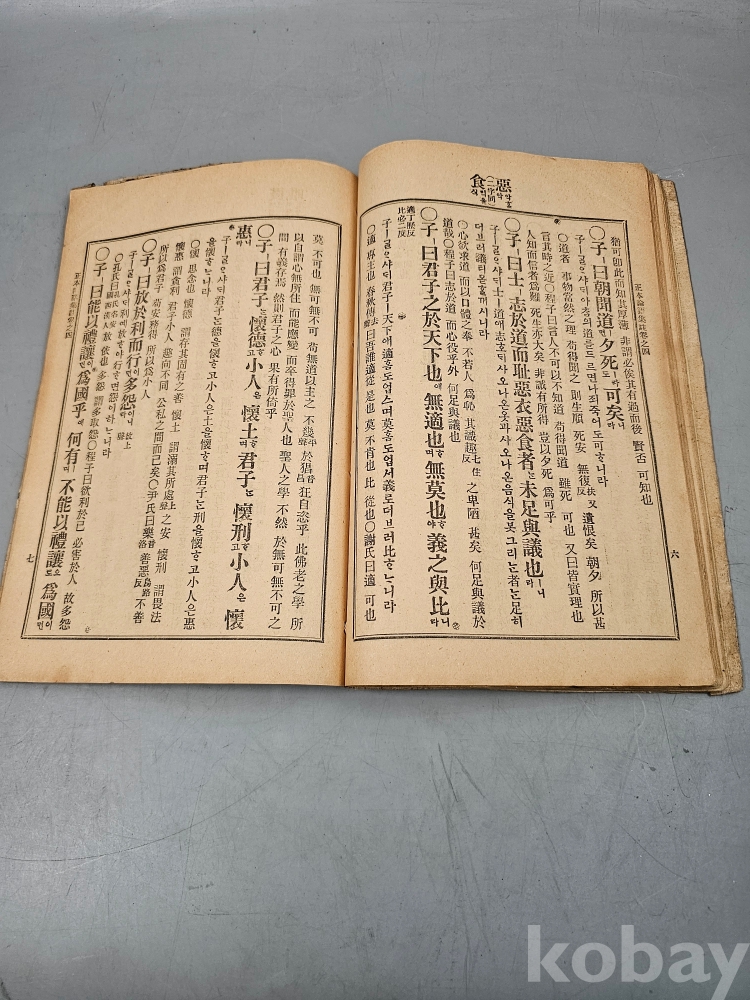 正本論語集註卷之四
六
惡食
猶可卽此而知其厚薄 非謂必俟其有過而後 賢否 可知也
○子ㅣ曰朝聞道면夕死도可矣니라
子ㅣᄀᆞᆯᄋᆞ샤ᄃᆡ아ᄎᆞᆷ의道를드르면나죄죽어도可ᄒᆞ니라
○道者 事物當然之理 苟得聞之 則生順 死安 無復 遺恨矣 朝夕 所以甚
言其時之近○程子曰言人不可以不知道 苟得聞道 雖死 可也 又曰皆實理也
人知而信者爲難 死生亦大矣 非誠有所得 豈以夕死 爲可乎
○子ㅣ曰士ㅣ志於道而耻惡衣惡食者ᄂᆞᆫ未足與議也ㅣ니라
子ㅣᄀᆞᆯᄋᆞ샤ᄃᆡ士ㅣ道애志호ᄃᆡ사오나온옷과사오나온음식을붓그리ᄂᆞᆫ者ᄂᆞᆫ足히
더브러議티몯ᄒᆞᆯ꺼시니라
○心欲求道 而以口體之奉 不若人 爲恥 其識趣 之卑陋 甚矣 何足與議於
道哉○程子曰志於道 而心役乎外 何足與議也
○子ㅣ曰君子之於天下也애無適也ᄒᆞ며無莫也ᄒᆞ야義之與比니라
適丁歷反
比必二反
子ㅣᄀᆞᆯᄋᆞ샤ᄃᆡ君子ㅣ天下애適홈도업스며莫홈도업서義로더브러比ᄒᆞᄂᆞ니라
○適 專主也 春秋傳 曰吾誰適從 是也 莫 不肯也 比 從也○謝氏曰適 可也
莫 不可也 無可無不可 苟無道以主之 不幾 於猖 狂自恣乎 此佛老之學 所
以自謂心無所住 而能應變 而卒得罪於聖人也 聖人之學 不然 於無可無不可之
間 有義存焉 然則君子之心 果有所倚乎
○子ㅣ曰君子ᄂᆞᆫ懷德ᄒᆞ고小人은懷土ᄒᆞ며君子ᄂᆞᆫ懷刑ᄒᆞ고小人은懷
惠니라
子ㅣᄀᆞᆯᄋᆞ샤ᄃᆡ君子ᄂᆞᆫ德을懷ᄒᆞ고小人은土를懷ᄒᆞ며君子ᄂᆞᆫ刑을懷ᄒᆞ고小人은惠
을懷ᄒᆞᄂᆞ니라
○懷 思念也 懷德 謂存其固有之善 懷土 謂溺其所處 之安 懷刑 謂畏法
懷惠 謂貪利 君子小人 趣向不同 公私之間而已矣○尹氏曰樂善惡 不善
所以爲君子 苟安務得 所以爲小人
○子ㅣ曰放於利而行이면多怨이니라
子ㅣᄀᆞᆯᄋᆞ샤ᄃᆡ利예放ᄒᆞ야行ᄒᆞ면怨이하ᄂᆞ니라
○孔氏曰 放 依也 多怨 謂多取怨○程子曰欲利於己 必害於人 故多怨
○子ㅣ曰能以禮讓이면爲國乎애何有ㅣ며不能以禮讓으로爲國이면
正本論語集註卷之四
七
kobay